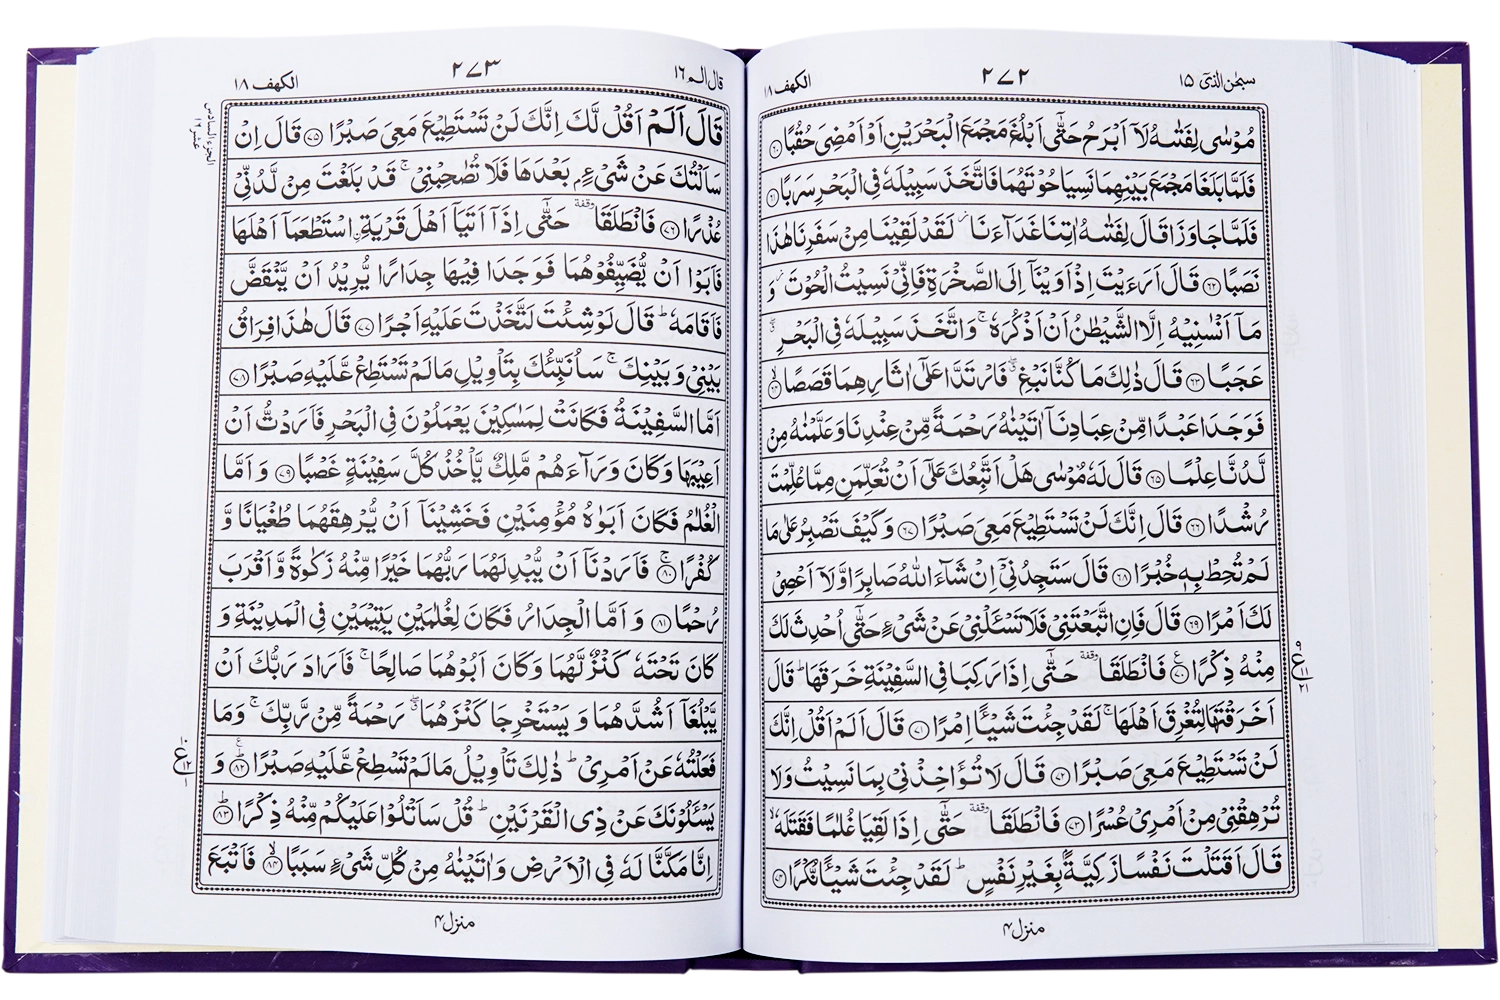 سبحٰن الذیٓ ۱۵
۲۷۲
الکهف ۱۸
مُوْسٰى لِفَتٰىهُ لَاۤ اَبْرَحُ حَتّٰۤى اَبْلُغَ مَجْمَعَ الْبَحْرَيْنِ اَوْ اَمْضِىَ حُقُبًا ۶۰
فَلَمَّا بَلَغَا مَجْمَعَ بَيْنِهِمَا نَسِيَا حُوْتَهُمَا فَاتَّخَذَ سَبِيْلَهٗ فِى الْبَحْرِ سَرَبًا ۶۱
فَلَمَّا جَاوَزَا قَالَ لِفَتٰىهُ اٰتِنَا غَدَآءَنَا ز لَقَدْ لَقِيْنَا مِنْ سَفَرِنَا هٰذَا
نَصَبًا ۶۲ قَالَ اَرَءَيْتَ اِذْ اَوَيْنَاۤ اِلَى الصَّخْرَةِ فَاِنِّىْ نَسِيْتُ الْحُوْتَ ز وَ
مَاۤ اَنْسٰنِيْهُ اِلَّا الشَّيْطٰنُ اَنْ اَذْكُرَهٗ ۚ وَاتَّخَذَ سَبِيْلَهٗ فِى الْبَحْرِ ۖ
عَجَبًا ۶۳ قَالَ ذٰلِكَ مَا كُنَّا نَبْغِ ۖ فَارْتَدَّا عَلٰٓى اٰثَارِهِمَا قَصَصًا ۙ ۶۴
فَوَجَدَا عَبْدًا مِّنْ عِبَادِنَاۤ اٰتَيْنٰهُ رَحْمَةً مِّنْ عِنْدِنَا وَعَلَّمْنٰهُ مِنْ
لَّدُنَّا عِلْمًا ۶۵ قَالَ لَهٗ مُوْسٰى هَلْ اَتَّبِعُكَ عَلٰٓى اَنْ تُعَلِّمَنِ مِمَّا عُلِّمْتَ
رُشْدًا ۶۶ قَالَ اِنَّكَ لَنْ تَسْتَطِيْعَ مَعِىَ صَبْرًا ۶۷ وَكَيْفَ تَصْبِرُ عَلٰى مَا
لَمْ تُحِطْ بِهٖ خُبْرًا ۶۸ قَالَ سَتَجِدُنِىْۤ اِنْ شَآءَ اللّٰهُ صَابِرًا وَّلَاۤ اَعْصِىْ
لَكَ اَمْرًا ۶۹ قَالَ فَاِنِ اتَّبَعْتَنِىْ فَلَا تَسْـَٔلْنِىْ عَنْ شَىْءٍ حَتّٰۤى اُحْدِثَ لَكَ
مِنْهُ ذِكْرًا ۷۰ ع فَانْطَلَقَا وقفة حَتّٰۤى اِذَا رَكِبَا فِى السَّفِيْنَةِ خَرَقَهَا ؕ قَالَ
اَخَرَقْتَهَا لِتُغْرِقَ اَهْلَهَا ۚ لَقَدْ جِئْتَ شَيْـًٔا اِمْرًا ۷۱ قَالَ اَلَمْ اَقُلْ اِنَّكَ
لَنْ تَسْتَطِيْعَ مَعِىَ صَبْرًا ۷۲ قَالَ لَا تُؤَاخِذْنِىْ بِمَا نَسِيْتُ وَلَا
تُرْهِقْنِىْ مِنْ اَمْرِىْ عُسْرًا ۷۳ فَانْطَلَقَا وقفة حَتّٰۤى اِذَا لَقِيَا غُلٰمًا فَقَتَلَهٗ ۙ
قَالَ اَقَتَلْتَ نَفْسًا زَكِيَّةًۢ بِغَيْرِ نَفْسٍ ؕ لَقَدْ جِئْتَ شَيْـًٔا نُّكْرًا ۷۴
ع ۲۱
منزل ۴
قال الم ۱۶
۲۷۳
الکهف ۱۸
قَالَ اَلَمْ اَقُلْ لَّكَ اِنَّكَ لَنْ تَسْتَطِيْعَ مَعِىَ صَبْرًا ۷۵ قَالَ اِنْ
سَاَلْتُكَ عَنْ شَىْءٍۢ بَعْدَهَا فَلَا تُصٰحِبْنِىْ ۚ قَدْ بَلَغْتَ مِنْ لَّدُنِّىْ
عُذْرًا ۷۶ فَانْطَلَقَا وقفة حَتّٰۤى اِذَاۤ اَتَيَاۤ اَهْلَ قَرْيَةِ ِۨاسْتَطْعَمَاۤ اَهْلَهَا
فَاَبَوْا اَنْ يُّضَيِّفُوْهُمَا فَوَجَدَا فِيْهَا جِدَارًا يُّرِيْدُ اَنْ يَّنْقَضَّ
فَاَقَامَهٗ ؕ قَالَ لَوْ شِئْتَ لَتَّخَذْتَ عَلَيْهِ اَجْرًا ۷۷ قَالَ هٰذَا فِرَاقُ
بَيْنِىْ وَبَيْنِكَ ۚ سَاُنَبِّئُكَ بِتَاْوِيْلِ مَا لَمْ تَسْتَطِعْ عَّلَيْهِ صَبْرًا ۷۸
اَمَّا السَّفِيْنَةُ فَكَانَتْ لِمَسٰكِيْنَ يَعْمَلُوْنَ فِى الْبَحْرِ فَاَرَدْتُّ اَنْ
اَعِيْبَهَا وَكَانَ وَرَآءَهُمْ مَّلِكٌ يَّاْخُذُ كُلَّ سَفِيْنَةٍ غَصْبًا ۷۹ وَاَمَّا
الْغُلٰمُ فَكَانَ اَبَوٰهُ مُؤْمِنَيْنِ فَخَشِيْنَاۤ اَنْ يُّرْهِقَهُمَا طُغْيَانًا وَّ
كُفْرًا ۚ ۸۰ فَاَرَدْنَاۤ اَنْ يُّبْدِلَهُمَا رَبُّهُمَا خَيْرًا مِّنْهُ زَكٰوةً وَّاَقْرَبَ
رُحْمًا ۸۱ وَاَمَّا الْجِدَارُ فَكَانَ لِغُلٰمَيْنِ يَتِيْمَيْنِ فِى الْمَدِيْنَةِ وَ
كَانَ تَحْتَهٗ كَنْزٌ لَّهُمَا وَكَانَ اَبُوْهُمَا صَالِحًا ۚ فَاَرَادَ رَبُّكَ اَنْ
يَّبْلُغَاۤ اَشُدَّهُمَا وَيَسْتَخْرِجَا كَنْزَهُمَا ۖ رَحْمَةً مِّنْ رَّبِّكَ ۚ وَمَا
فَعَلْتُهٗ عَنْ اَمْرِىْ ؕ ذٰلِكَ تَاْوِيْلُ مَا لَمْ تَسْطِعْ عَّلَيْهِ صَبْرًا ؕ ۸۲ ع وَ
يَسْـَٔلُوْنَكَ عَنْ ذِى الْقَرْنَيْنِ ؕ قُلْ سَاَتْلُوْا عَلَيْكُمْ مِّنْهُ ذِكْرًا ؕ ۸۳
اِنَّا مَكَّنَّا لَهٗ فِى الْاَرْضِ وَاٰتَيْنٰهُ مِنْ كُلِّ شَىْءٍ سَبَبًا ۙ ۸۴ فَاَتْبَعَ
الجزء السادس عشر ۱۶
ع ۱۲
منزل ۴